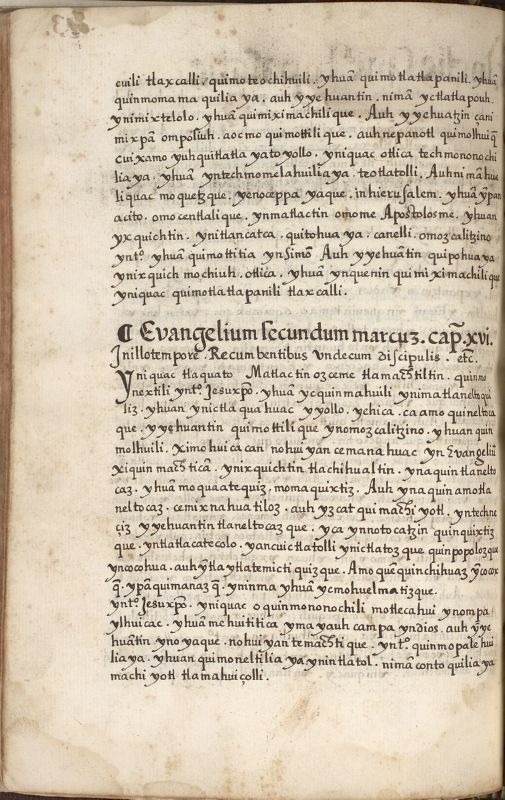 cuili tlaxcalli. quimoteochihuili. yhuā quimotlatlapanili. yhuā
quinmomamaquilia ya. auh y yehuantin. nimā yctlatlapouh.
yn imixtelolo. yhuā quimiximachilique. Auh y yehuatzin çani
mixpā ompoliuh. aocmo quimottilique. auh nepanotl quimolhuiq̄
cuixamo yuhquitlatla yatoyollo. yniquac otlica techmononochi
lia ya. yhuā yntechmomelahuilia ya. teotlatolli. Auh nimā hue
liquac moquetzque. yenoceppa yaque. in hierusalem. yhuā ypan
acito. omocentlalique. ynmatlactin omome Apostolosme. yhuan
yxquichtin. ynitlancatca. quitohua ya. canelli. omozcalitzino
yntº. yhuā quimottitia ynSimō Auh y yehuātin quipohua ya
ynixquich mochiuh. otlica. yhuā ynquenin quimiximachilique
yniquac quimotlatlapanili tlaxcalli.
¶ Evangelium secundum marcuz. cap̄. xvi.
Inillotempore. Recumbentibus Undecum discipulis. etc̄.
Yniquac tlaquato Matlactin ozceme tlamachtiltin. quinmo
nextili yntº. Jesuxp̄o. yhuā ycquinmahuili ynimatlaneltoqui
liz. yhuan ynictlaquahuac yyollo. yehica. ca amo quineltoca
que. y yehuantin quimottilique ynomozcalitzino. yhuan quin
molhuili. Ximohuicacan nohuiyan cemanahuac yn Evangeliū
xiquinmachticā. ynixquichtin tlachihualtin. ynaquintlanelto
caz. yhuā moquaatequiz. momaquixtiz. Auh ynaquinamotla
neltocaz. cemixnahuatiloz. auh yzcatqui machiyotl. yntechne
çiz y yehuantin tlaneltocazque. yca ynnotocatzin quinquixtiz
que. yntlatlacatecolo. yancuictlatolli ynictlatozque quinpopolozque
yncocohua. auh yntla ytlatemicti quizque. Amo quēquinchihuaz ycocox
q̄. ypā quimanazq̄. yninma yhuā ycmohuelmatizque.
yntº. Jesuxp̄o. yniquac oquinmononochili motlecahui ynompa
ylhuicac. yhuā mehuititica ymayauh campa yndios. auh yye
huātin ynoyaque. nohuiyan temachtique. yntº. quinmopalehui
lia ya. yhuan quimoneltililia ya ynintlatol. nimā contoquilia ya
machiyotl tlamahuiçolli.